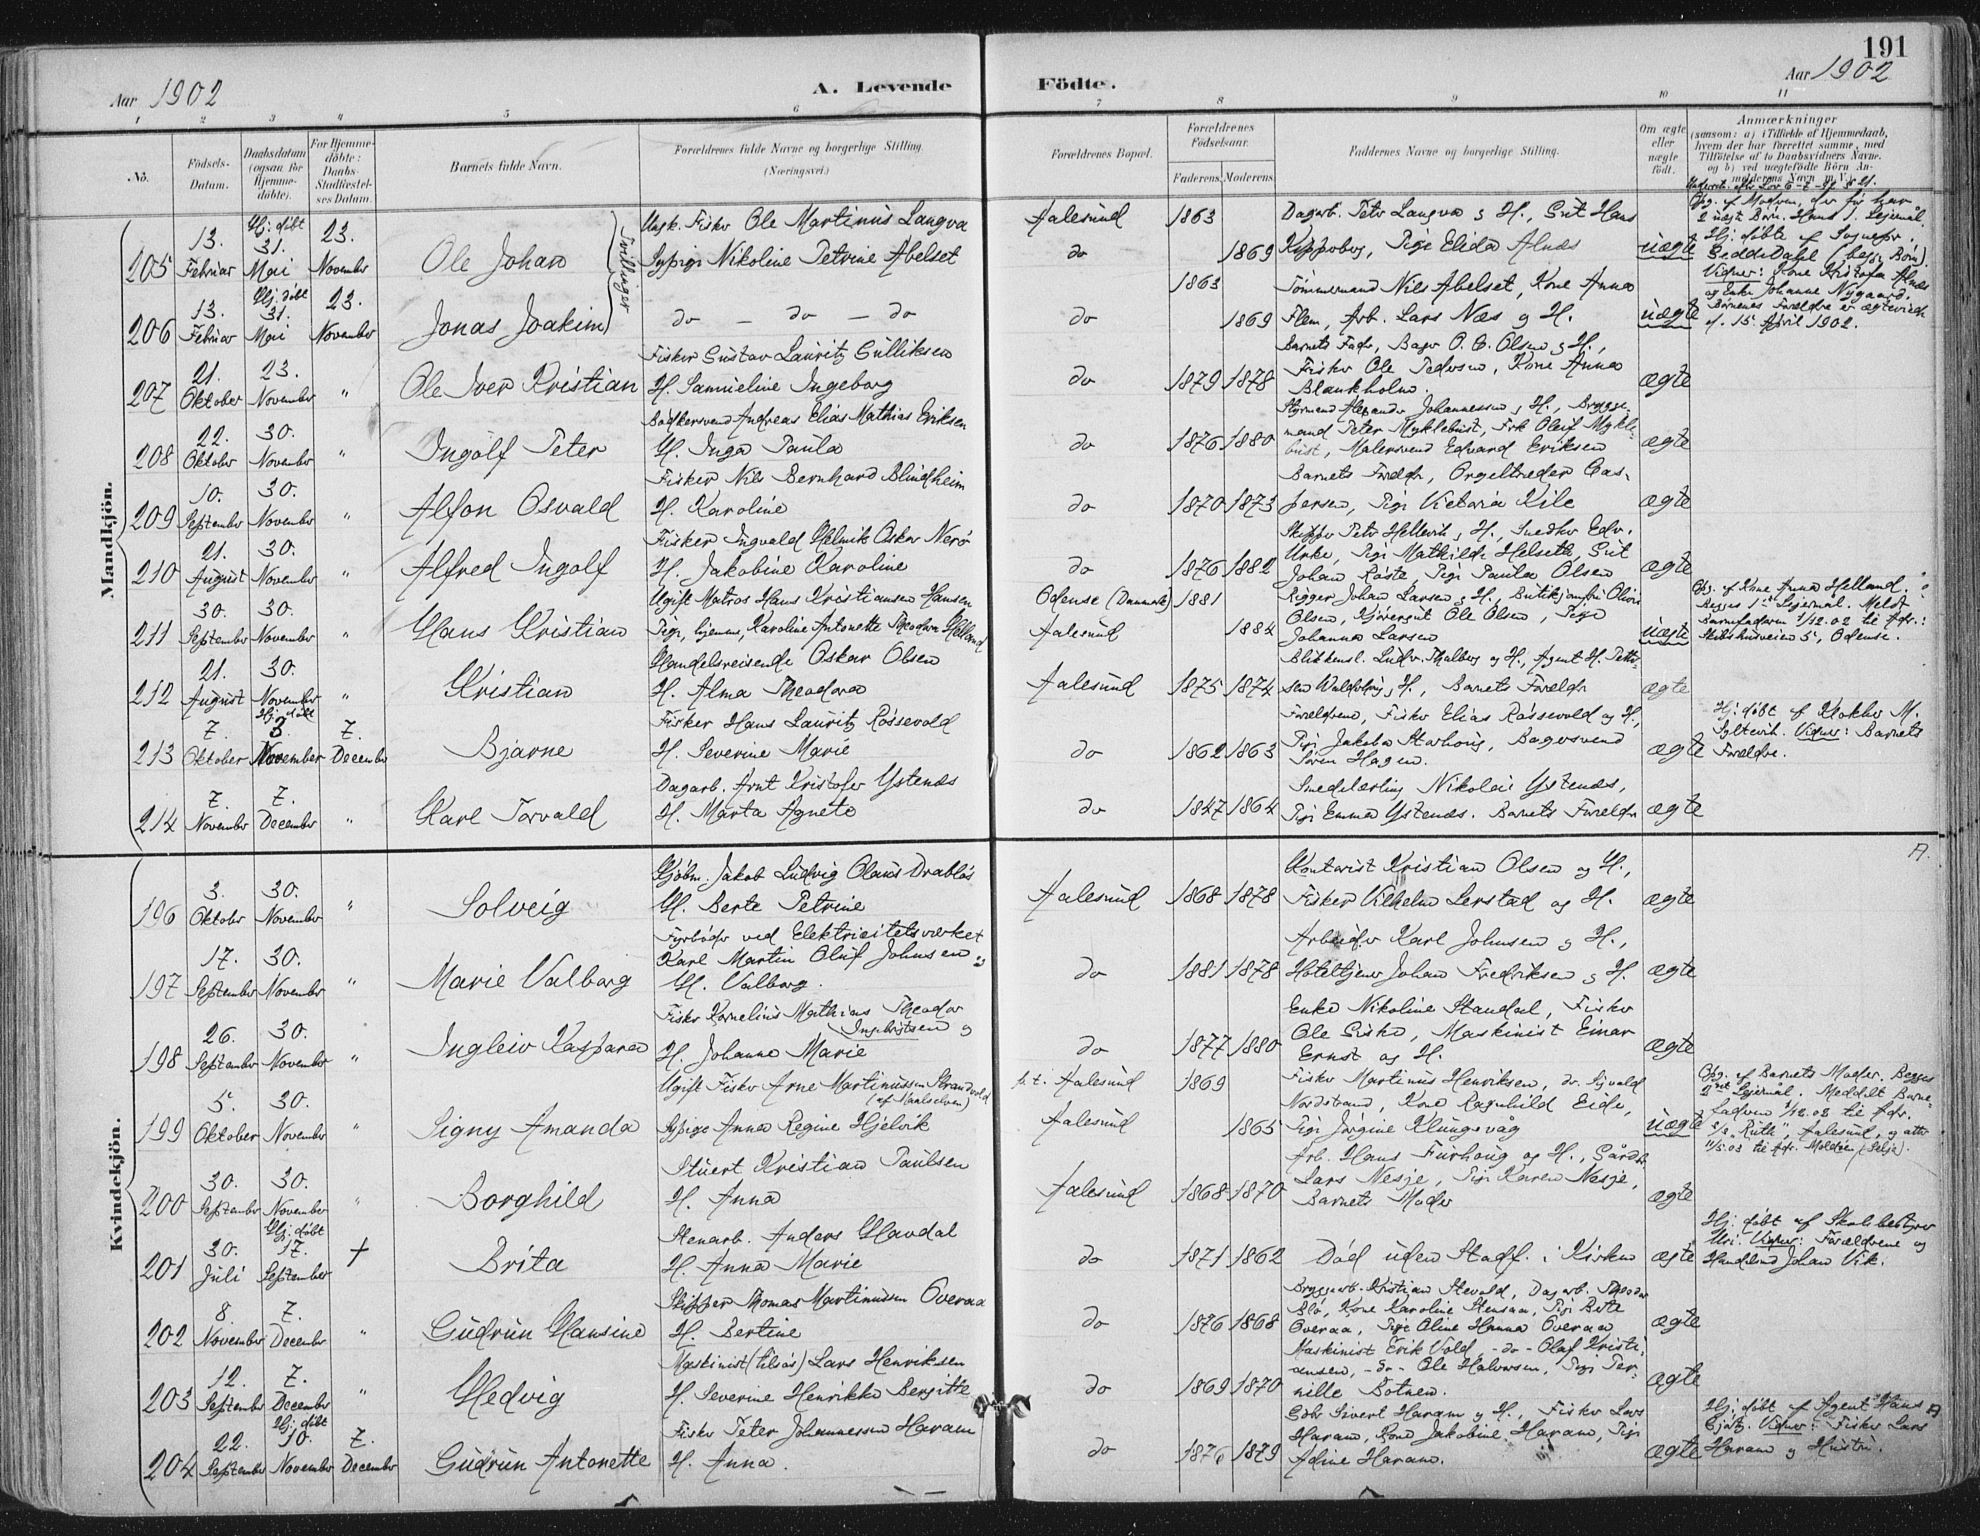 191
Aar 1902
A. Levende
Födte.
Aar 1902
1 2 3 4 5 6 7 8 9 10 11
No.
Födsels-Datum.
Daabsdatum (ogsaa for Hjemmedöbte).
For Hjemmedöbte: Daabs-Stadfæstelses Datum.
Barnets fulde Navn.
Forældrenes fulde Navne og borgerlige Stilling. (Næringsvei.)
Forældrenes Bopæl.
Forældrenes Födselsaar.
Faderens. Moderens.
Faddernes Navne og borgerlige Stilling.
Om ægte eller uægte födt.
Anmærkninger
(saasom: a) i Tilfælde af Hjemmedaab, hvem der har forrettet samme, med Tilföielse af to Daabsvidners Navne, og b) ved uægtefödte Börn Anmelderens Navn m. V.)
Mandkjön.
205 13. Februar Hj. döbt 31. Mai 23. November Ole Johan
Tvillinger
Ungk. Fisker Ole Martinus Langva
Sypige Nikoline Petrine Abelset
Aalesund 1863
do 1869
Dagarb. Petr Langva og H., Gut Hans
Pige Elida Alnæs
uægte
Opg. af Modren, der før har
2 uægt Børn. Hans 1. Leiermål.
Hj. døbt af Sognepr.
GeddeDahl (begge Børn).
Vidner: Kone Kristofa Alnæs
og Enke Johanne Nygaard.
Børnenes Forældre er ægteviede
d. 15 April 1902.
206 13. Februar Hj. döbt 31. Mai 23. November Jonas Joakim
do — do — do
do 1863 1869
Tømmermand Nils Abelset, Kone Anna
Flem, Arb. Lars Næs og H.
uægte
207 21. Oktober 23. November " Ole Iver Kristian
Fisker Gustav Lauritz Gulliksen
H. Samueline Ingeborg
do 1879 1878
Barnets Fader, Bager O. C. Olsen og H.,
Fisker Ole Pedersen, Kone Anna
Blankholm.
ægte
208 22. Oktober 30. November " Ingolf Peter
Bødkersvend Andreas Elias Mathias Eriksen
H. Inga Paula
do 1876 1880
Styrmand Alexander Johannessen og H., Brygge-
mand Peter Myklebust, Frk Oluf Mykle-
bust, Malersvend Edvard Eriksen
ægte
209 10. September 30. November " Alfon Osvald
Fisker Nils Bernhard Blindheim
H. Karoline
do 1870 1873
Barnets Forældre, Orgeltræder Cas-
persen, Pige Victoria Kile
ægte
210 21. August 30. November " Alfred Ingolf
Fisker Ingvald Helmik Oskar Nerø
H. Jakobine Karoline
do 1876 1882
Skipper Petr Hellevik og H., Snedker Edv.
Urke, Pige Mathilde Helseth, Gut
Johan Røste, Pige Paula Olsen
ægte
211 30. September 30. November " Hans Kristian
Ugift Matros Hans Kristiansen Hansen
Pige, hjemme, Karoline Antonette Theodora Helland
Odense (Danmark) 1881
Aalesund 1884
Rigger Johan Larsen og H., Butikjomfru Olivia
Olsen, Kjøregut Ole Olsen, Pige
Johanna Larsen
uægte
Opg. af Kone Anna Helland.
Begges 1ste Leiermål. Meldt
Barnefaderen 1/12.02 til Adr.:
Skibshusveien 5, Odense.
212 21. August 30. November " Kristian
Handelsreisende Oskar Olsen
H. Alma Theodora
Aalesund 1875 1874
Blikkensl. Ludv. Thalberg og H., Agent H. Petter-
sen og H., Barnets Forældre
ægte
213 7. Oktober Hj. döbt 3. November 7. December Bjarne
Fisker Hans Lauritz Røssevold
H. Severine Marie
do 1862 1863
Forældrene, Fisker Elias Røssevold og H.,
Pige Jakoba Starhoug, Bagersvend
Søren Hagen.
ægte
Hj. døbt af Klokker M.
Syltevik. Vidner: Barnets
Forældre.
214 7. November 7. December " Karl Torvald
Dagarb. Arnt Kristofer Ystenæs
H. Marta Agnete
do 1847 1864
Smedelærling Nikolai Ystenæs,
Pige Emma Ystenæs. Barnets Forældre
ægte
Kvindekjön.
196 3. Oktober 30. November " Solveig
Kjøbm. Jakob Ludvig Olaus Drabløs
H. Berte Petrine
Aalesund 1868 1878
Kontorist Kristian Olsen og H.,
Fisker Vilhelm Lerstad og H.
ægte
197 17. September 30. November " Marie Valborg
Fyrbøder ved Elektricitetsværket
Karl Martin Oluf Johnsen og
H. Valborg.
do 1881 1878
Arbeider Karl Johnsen og H.,
Hoteltjener Johan Fredriksen og H.
ægte
198 26. September 30. November " Ingleiv Kaspara
Fisker Kornelius Mathias Theodor
Ingebrigtsen og
H. Johanne Marie
do 1877 1880
Enke Nikoline Standal, Fisker
Ole Giske, Maskinist Einar
Ernst og H.
ægte
199 5. Oktober 30. November " Signy Amanda
Ugift Fisker Arne Martinussen Strandvold
(af Maalselven)
Sypige Anna Regine Hjelvik
p.t. Aalesund 1869
Aalesund 1865
Fisker Martinus Henriksen, do. Sjvald
Nordstrand, Kone Ragnhild Eide,
Pige Jørgine Klungsvåg
uægte
Opg. af Barnets Moder. Begges
2det Leiermål. Meddelt Barne-
faderen 1/12.02 til Adr.
S/S "Ruth", Aalesund, og atter
11/5.03 til Adr. Moldøen (Selje).
200 30. September 30. November " Borghild
Stuert Kristian Paulsen
H. Anna
Aalesund 1868 1870
Arb. Hans Furhoug og H., Gårdbr.
Lars Nesje, Pige Karen Nesje,
Barnets Moder
ægte
201 30. Juli Hj. döbt 17. September + Brita
Stenarb. Anders Havdal
H. Anna Marie
do 1871 1862
Død uden Stadf. i Kirken
ægte
Hj. døbt af Skolebestyrer
Uri. Vidner: Forældrene og
Handelsmd Johan Vik.
202 8. November 7. December " Gudrun Hansine
Skipper Thomas Martinussen Overaa
H. Bertine
do 1876 1868
Bryggearb. Kristian Stevold, Dagarb. Theodor
Blø, Kone Karoline Stensaa, Pige Berte
Overaa, Pige Oline Hanna Overaa
ægte
203 12. September 7. December " Hedvig
Maskinist (tilsøs) Lars Henriksen
H. Severine Henrikke Bergitte
do 1869 1870
Maskinist Erik Vold, -do- Olaf Kristi-
ansen, -do- Ole Halvorsen, Pige Per-
nille Botnen.
ægte
204 22. September Hj. döbt 10. November 7. December Gudrun Antonette
Fisker Peter Johannessen Haram
H. Anna.
do 1876 1879
Gbr Sivert Haram og H., Fisker Lars
Haram, Kone Jakobine Haram, Pige
Adine Haram.
ægte
Hj. døbt af Agent Hans
Vidner: Fisker Lars
Haram og Hustru.